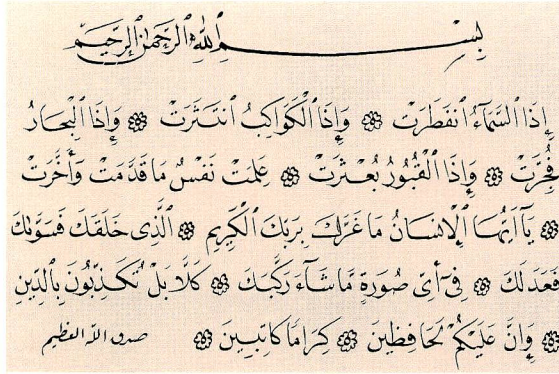 بِسْمِ ٱللَّهِ ٱلرَّحْمَٰنِ ٱلرَّحِيمِ
إِذَا ٱلسَّمَآءُ ٱنفَطَرَتْ ۞ وَإِذَا ٱلْكَوَاكِبُ ٱنتَثَرَتْ ۞ وَإِذَا ٱلْبِحَارُ
فُجِّرَتْ ۞ وَإِذَا ٱلْقُبُورُ بُعْثِرَتْ ۞ عَلِمَتْ نَفْسٌ مَا قَدَّمَتْ وَأَخَّرَتْ
۞ يَآ أَيُّهَا ٱلْإِنْسَانُ مَا غَرَّكَ بِرَبِّكَ ٱلْكَرِيمِ ۞ ٱلَّذِى خَلَقَكَ فَسَوَّىٰكَ
فَعَدَلَكَ ۞ فِىٓ أَىِّ صُورَةٍ مَّا شَآءَ رَكَّبَكَ ۞ كَلَّا بَلْ تُكَذِّبُونَ بِٱلدِّينِ
۞ وَإِنَّ عَلَيْكُمْ لَحَافِظِينَ ۞ كِرَامًا كَاتِبِينَ ۞ صدق الله العظيم